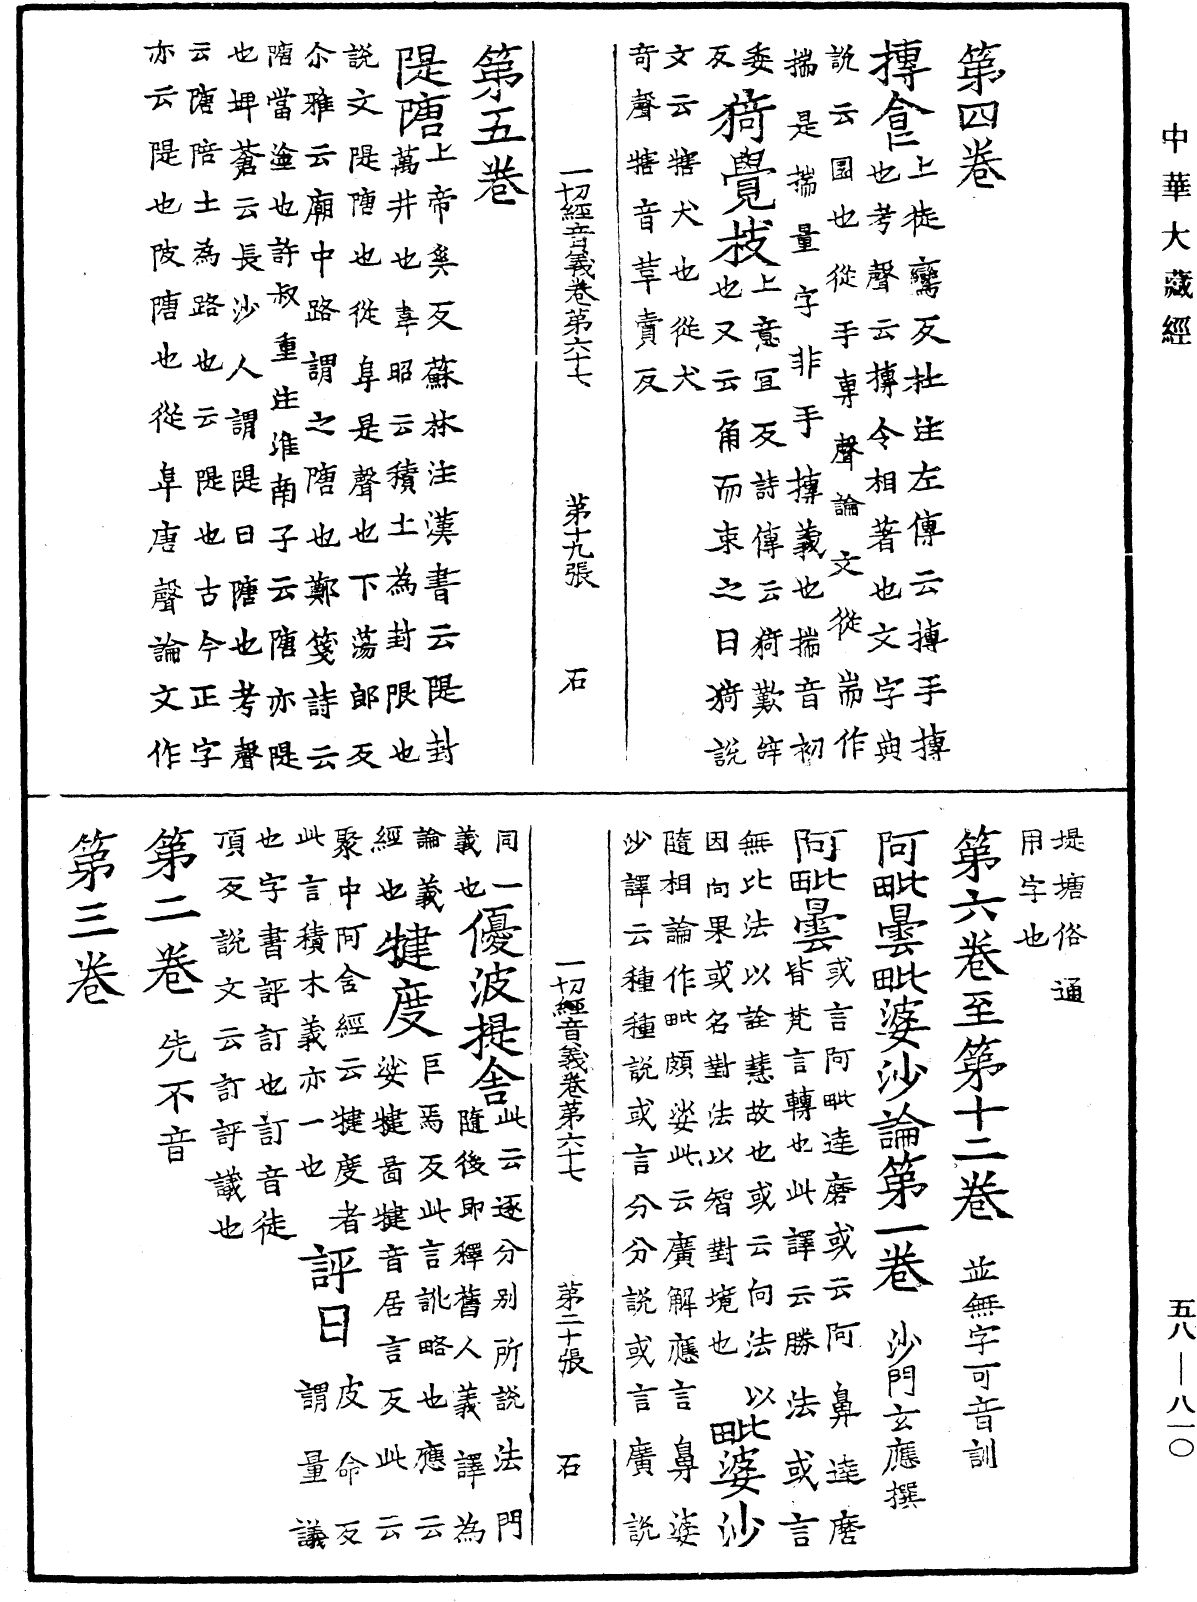 中華大藏經
第四卷
摶食上徒鸞反杜注左傳云摶手摶
也考聲云摶令相著也文字典
說云園也從手專聲論文從耑作
揣是揣量字非手摶義也揣音初
委反
猗覺枝上意宜反詩傳云猗歎辝
也又云角而束之曰猗說
文云犗犬也從犬
奇聲犗音賣反
一切經音義卷第六十七 第十九張 石
第五卷
隄隚上帝奚反蘇林注漢書云隄封
萬井也韋昭云積土為封限也
說文隄隚也從阜是聲也下蕩郎反
尒雅云廟中路謂之隚也鄭箋詩云
隚當塗也許叔重注淮南子云隚亦隄
也埤蒼云長沙人謂隄曰隚也考聲
云隚陪土為路也云隄也古今正字
亦云隄也陂隚也從阜唐聲論文作
堤塘俗通
用字也
第六卷至第十二卷 並無字可音訓
阿毗曇毗婆沙論第一卷 沙門玄應撰
阿毗曇或言阿毗達磨或云阿鼻達磨
皆梵言轉也此譯云勝法或言
無比法以詮慧故也或云向法以
因向果或名對法以智對境也
毗婆沙
隨相論作毗頗娑此云廣解應言鼻婆
沙譯云種種說或言分分說或言廣說
一切經音義卷第六十七 第二十張 石
同一
義也
優波提舍此云逐分別所說法門
隨後即釋舊人義譯為
論義
經也
犍度巨焉反此言訛略也應云
娑犍啚犍音居言反此云
聚中阿含經云犍度者
此言積木義亦一也
評曰皮命反
謂量議
也字書評訂也訂音徒
頂反說文云訂評議也
第二卷 先不音
第三卷
五八—八一〇